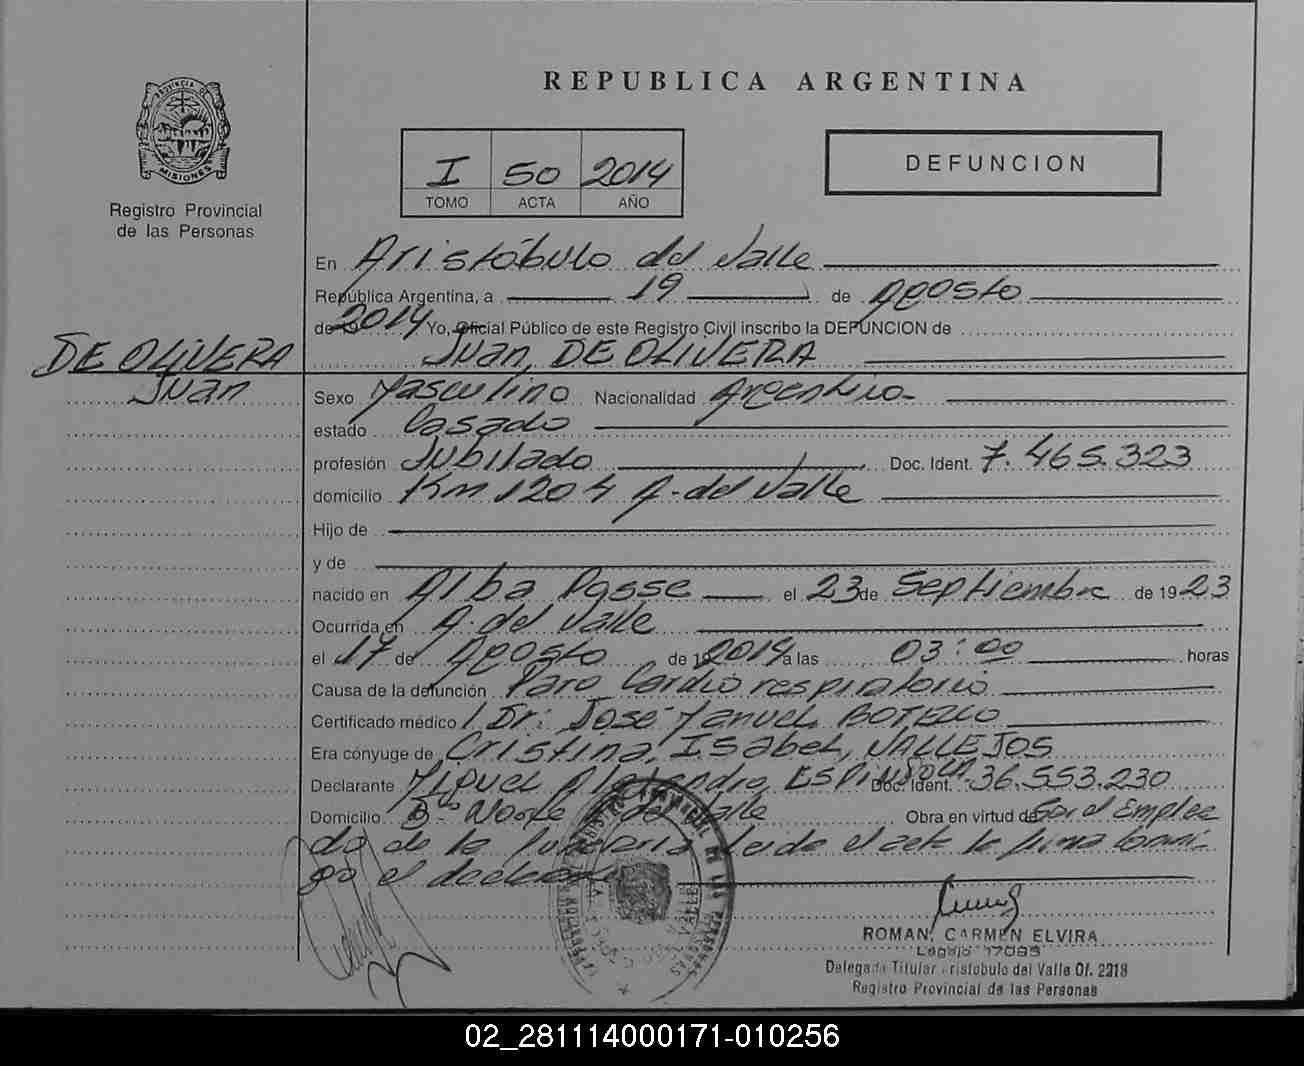 REPUBLICA ARGENTINA
PROVINCIA DE
MISIONES
Registro Provincial
de las Personas
I 50 2014
TOMO ACTA AÑO
DEFUNCION
En Aristóbulo del Valle
República Argentina, a 19 de Agosto
de 2014 Yo, Oficial Público de este Registro Civil inscribo la DEFUNCION de
DE OLIVERA
Juan
Juan, DE OLIVERA
Sexo Masculino Nacionalidad Argentino
estado Casado
profesión Jubilado Doc. Ident. 7.465.323
domicilio Km 1204 A. del Valle
Hijo de
y de
nacido en Alba Posse el 23 de Septiembre de 1923
Ocurrida en A. del Valle
el 17 de Agosto de 2014 a las 03:00 horas
Causa de la defunción Paro Cardio respiratorio
Certificado médico Dr: José Manuel BOTELLO
Era cónyuge de Cristina, Isabel, VALLEJOS
Declarante Miguel Alejandro, ESPINDOLA Doc. Ident. 36.553.230
Domicilio B- del Valle Obra en virtud de Ser el Emplea
do de la funeraria leida el acta la firma conmi
go el declarante
ROMAN, CARMEN ELVIRA
Legajo 17093
Delegada Titular Aristobulo del Valle Of. 2218
Registro Provincial de las Personas
02_281114000171-010256